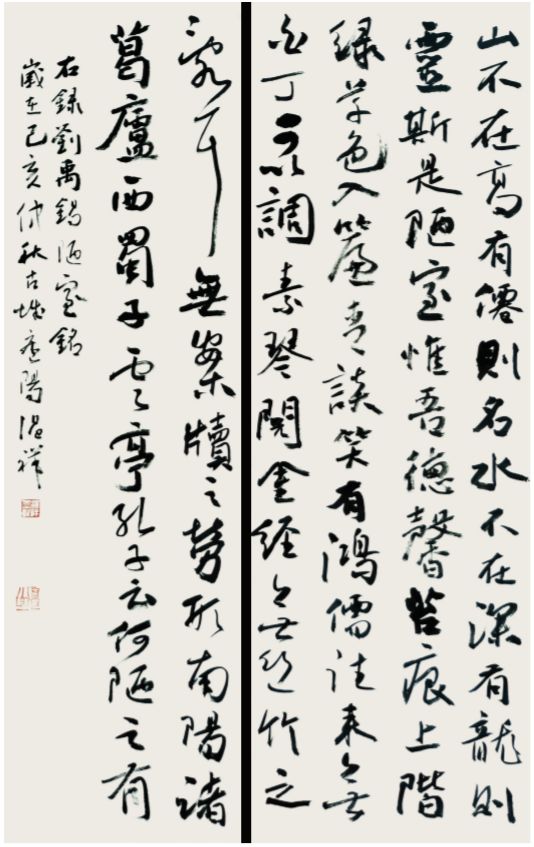 山不在高有僊則名水不在深有龍則
靈斯是陋室惟吾德馨苔痕上階
緑草色入簾青談笑有鴻儒往来無
白丁可以調素琴閱金經無絲竹之
亂耳無案牘之勞形南陽諸
葛廬西蜀子雲亭孔子云何陋之有
右録劉禹錫陋室銘
歲在己亥仲秋古城陽温祥